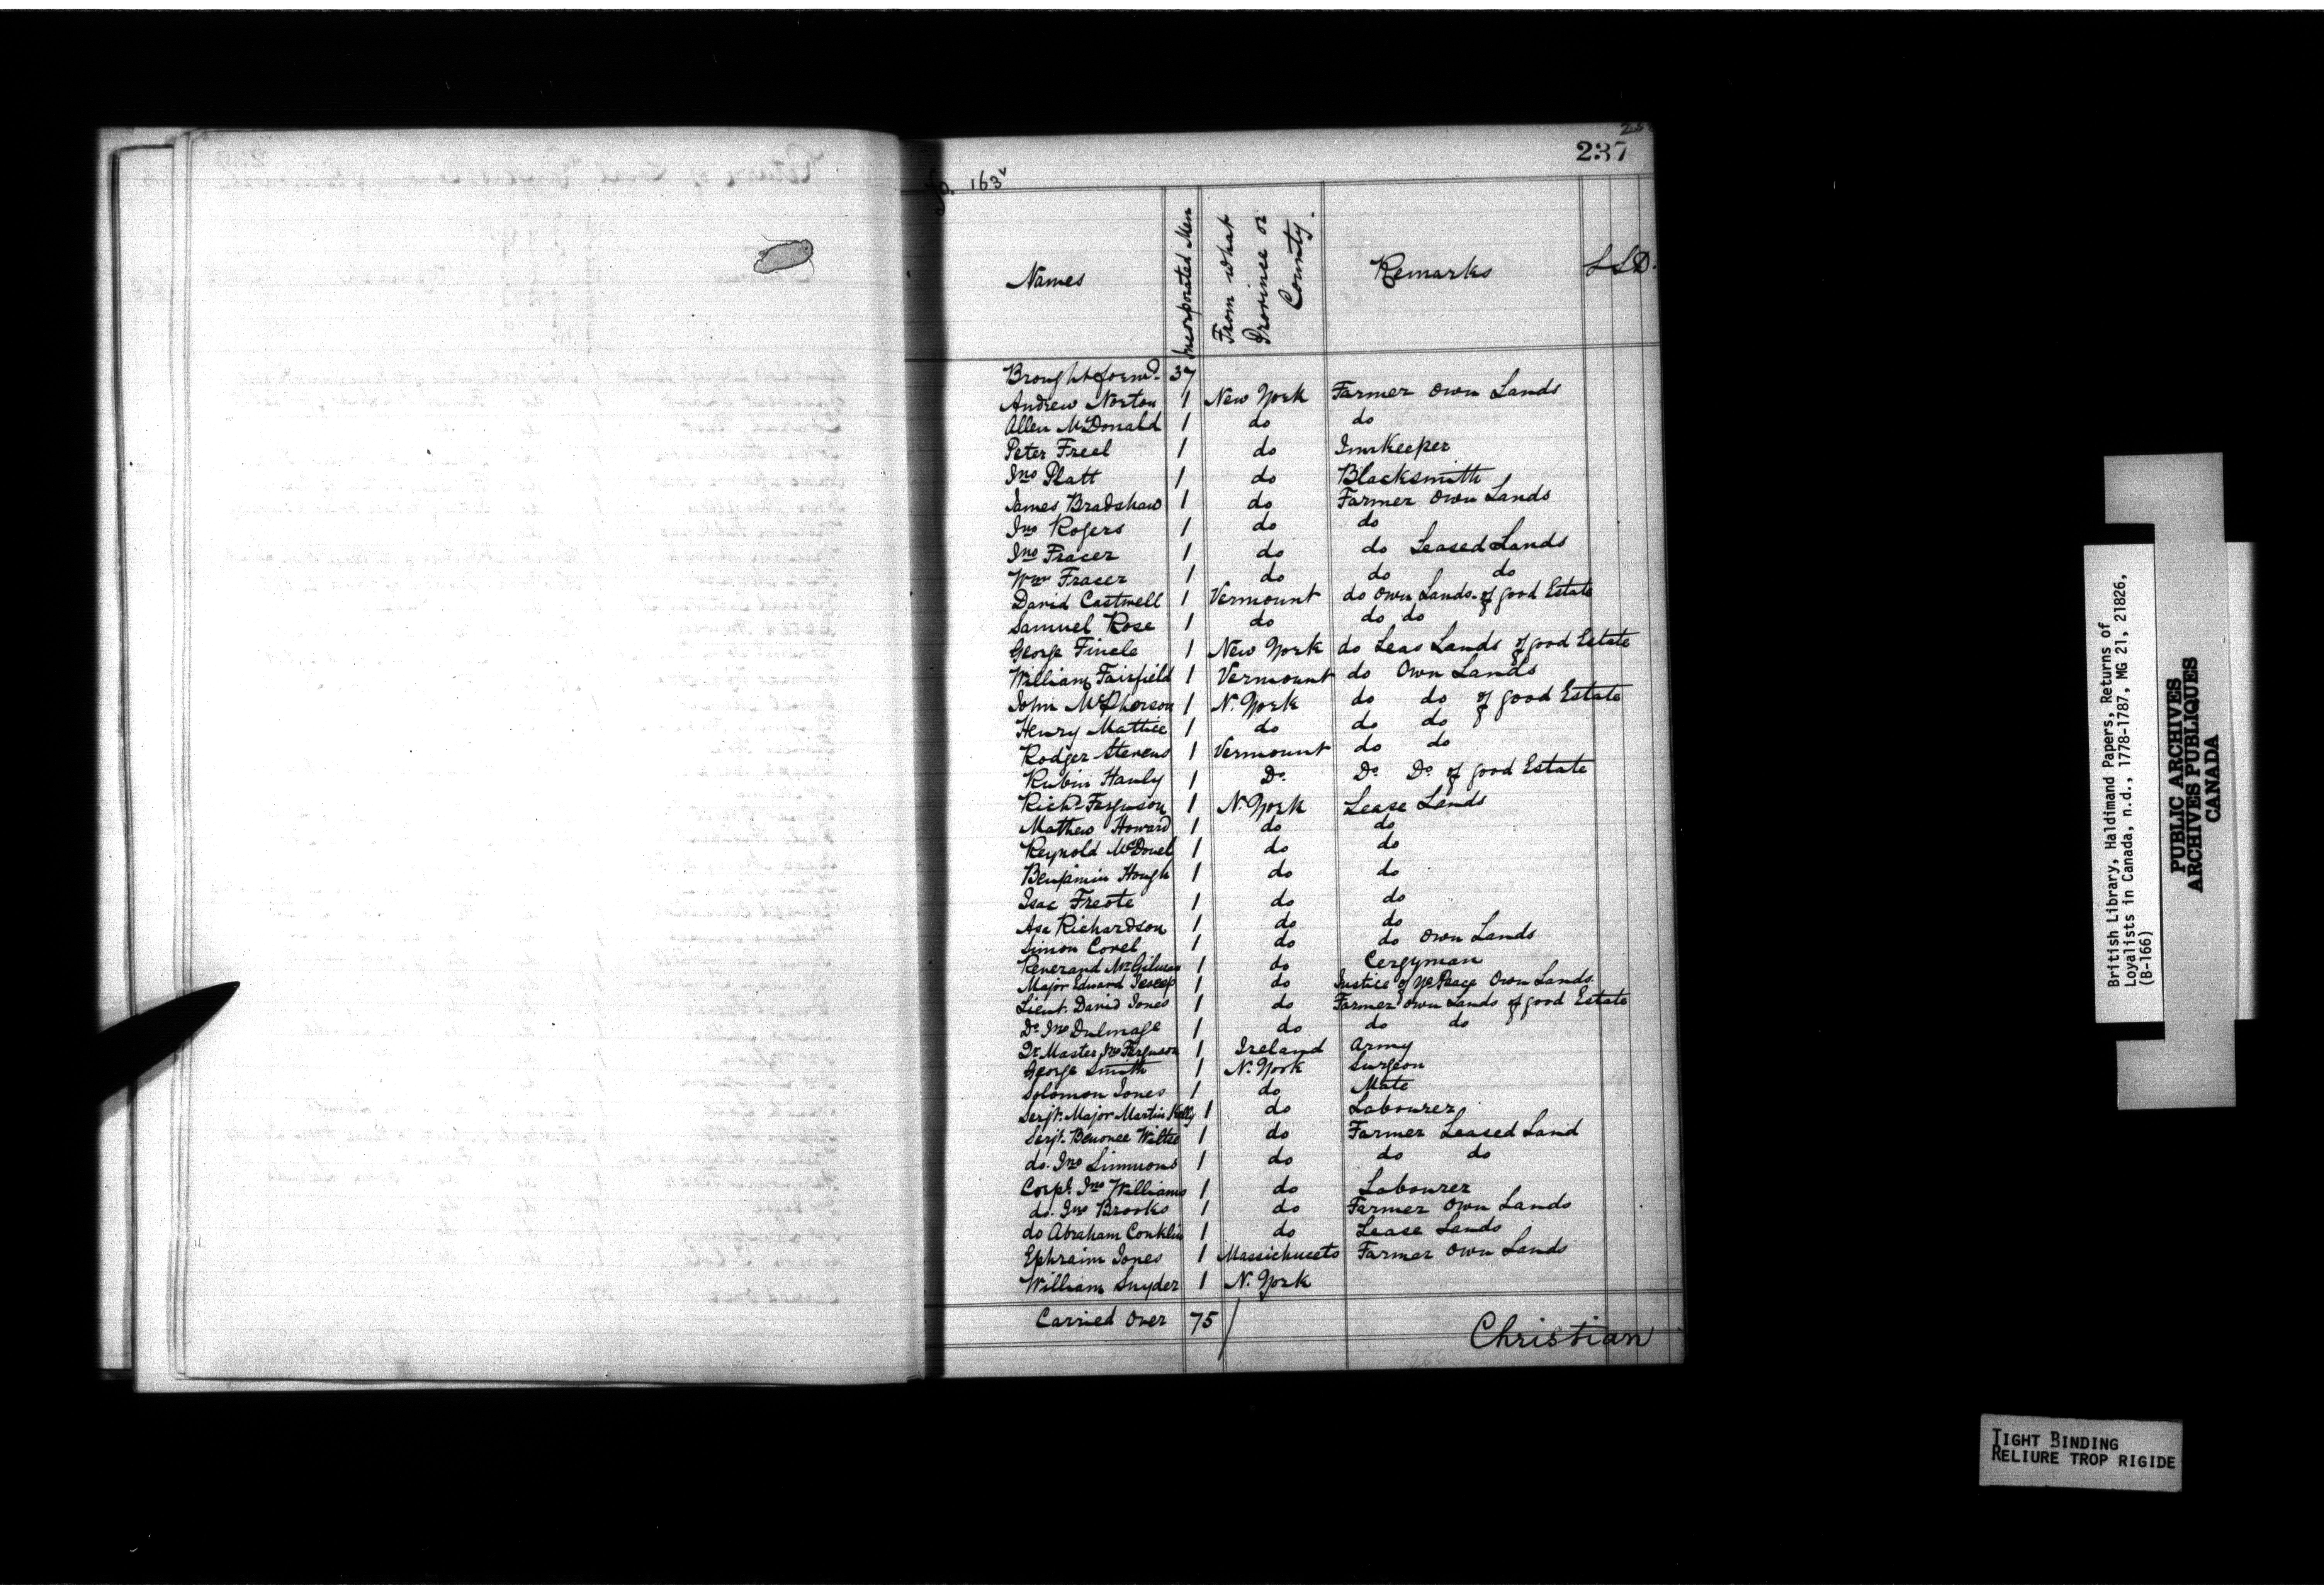 237
No. 163v
Names Incorporated Men From what Province or County. Remarks L S D.
Brought forwd. 37
Andrew Norton 1 New York Farmer Own Lands
Allen McDonald 1 do do
Peter Freel 1 do Innkeeper
Jno Platt 1 do Blacksmith
James Bradshaw 1 do Farmer Own Lands
Jno Rogers 1 do do
Jno Fracer 1 do do Leased Lands
Wm Fracer 1 do do do
David Castwell 1 Vermount do Own Lands of good Estate
Samuel Rose 1 do do do
George Finele 1 New York do Leas Lands of good Estate
William Fairfield 1 Vermount do Own Lands
John McPherson 1 N. York do do of good Estate
Henry Mattice 1 do do do
Rodger Stevens 1 Vermount do do
Rubin Hanly 1 Do Do Do of good Estate
Richd. Ferguson 1 N. York Lease Lands
Mathew Howard 1 do do
Reynold McDonel 1 do do
Benjamin Hough 1 do do
Isac Freote 1 do do
Asa Richardson 1 do do
Simon Covel 1 do do Own Lands
Reverand Mr Gilmas 1 do Cergyman
Major Edward Jeseep 1 do Justice of ye Peace Own Lands
Lieut. David Jones 1 do Farmer Own Lands of good Estate
Do Jno Dulmage 1 do do do
Qr Master Jno Ferguson 1 Ireland Army
George Smith 1 N. York Surgeon
Solomon Jones 1 do Mate
Serjt. Major Martin Kelly 1 do Labourer
Serjt. Benonee Wiltse 1 do Farmer Leased Land
do. Jno Simmons 1 do do do
Corpl. Jno Williams 1 do Labourer
do. Jno Brooks 1 do Farmer Own Lands
do Abraham Conklin 1 do Lease Lands
Ephraim Jones 1 Massichucets Farmer Own Lands
William Snyder 1 N. York
Carried Over 75
Christian
British Library, Haldimand Papers, Returns of
Loyalists in Canada, n.d., 1778-1787, MG 21, 21826,
(B-166)
PUBLIC ARCHIVES
ARCHIVES PUBLIQUES
CANADA
TIGHT BINDING
RELIURE TROP RIGIDE